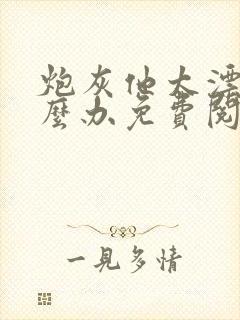 炮灰他太漂
麼办免費閱
一見多情